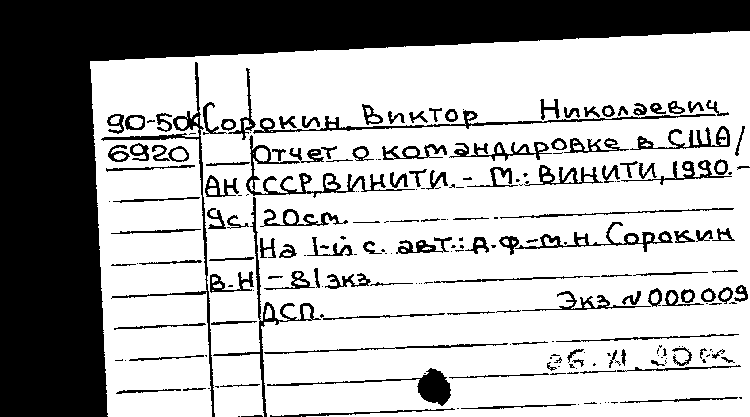 90-50к Сорокин Виктор Николаевич
6920 Отчет о командировке в США/
АН СССР, ВИНИТИ. - М.: ВИНИТИ, 1990. -
9с. 20см.
На 1-й с. авт.: д.ф.-м.н. Сорокин
В.Н. - 81экз.
ДСП. Экз. N 000009